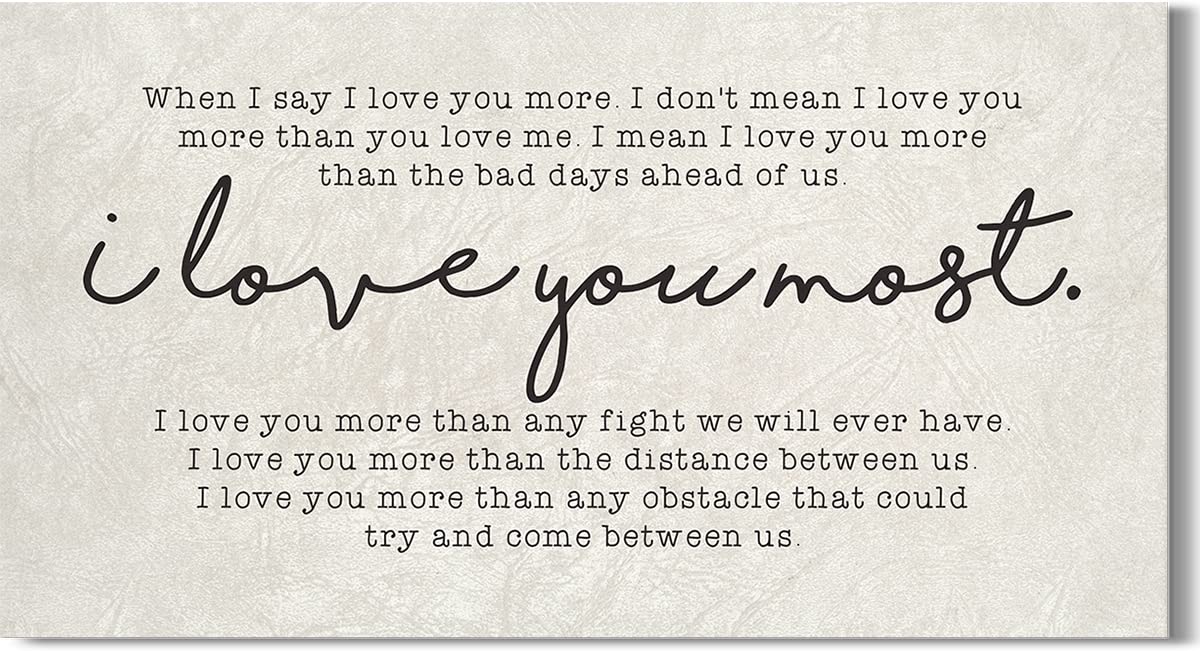 When I say I love you more. I don't mean I love you
more than you love me. I mean I love you more
than the bad days ahead of us.
i love you most.
I love you more than any fight we will ever have.
I love you more than the distance between us.
I love you more than any obstacle that could
try and come between us.